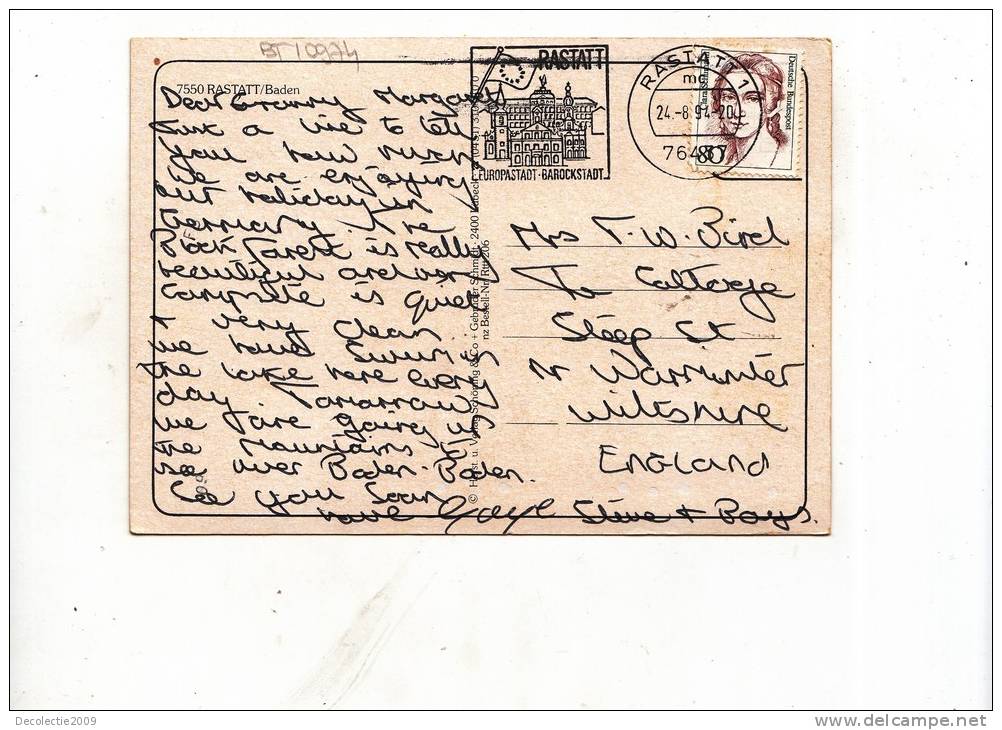 BT10974
7550 RASTATT/Baden
Dear Granny Margaret
Just a line to tell
you how much
we are enjoying
our holiday in
Germany. The
Black Forest is really
beautiful and our
campsite is quiet
+ very clean.
We have swum in
the lake here every
day. Tomorrow
we are going up
the mountains to
see over Baden-Baden.
See you soon
love Gayl Steve + Boys.
RASTATT
EUROPASTADT · BAROCKSTADT
RASTATT 1
mc
24.-8.94-20
76437
Deutsche Bundespost
80
Mrs T. W. Bird
The Cottage
Steep St
Nr Warminster
Wiltshire
England
Decolectie2009
www.delcampe.net